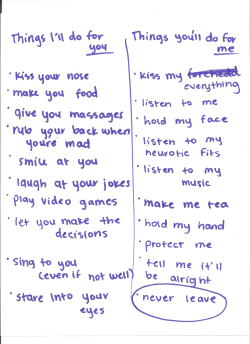 Things I'll do for
you
• Kiss your nose
• make you food
• give you massages
• rub your back when
you're mad
• smile at you
• laugh at your jokes
• play video games
• let you make the
decisions
• sing to you
(even if not well)
• stare into your
eyes
Things you'll do for
me
• kiss my forehead
everything
• listen to me
• hold my face
• listen to my
neurotic fits
• listen to my
music
• make me tea
• hold my hand
• protect me
• tell me it'll
be alright
• never leave